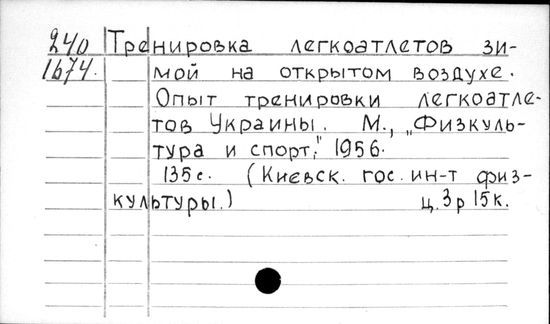 240 Тренировка легкоатлетов зи-
1674. мой на открытом воздухе.
Опыт тренировки легкоатле-
тов Украины. М., „Физкуль-
тура и спорт," 1956.
135 с. (Киевск. гос. ин-т физ-
культуры.) ц. 3 р 15 к.